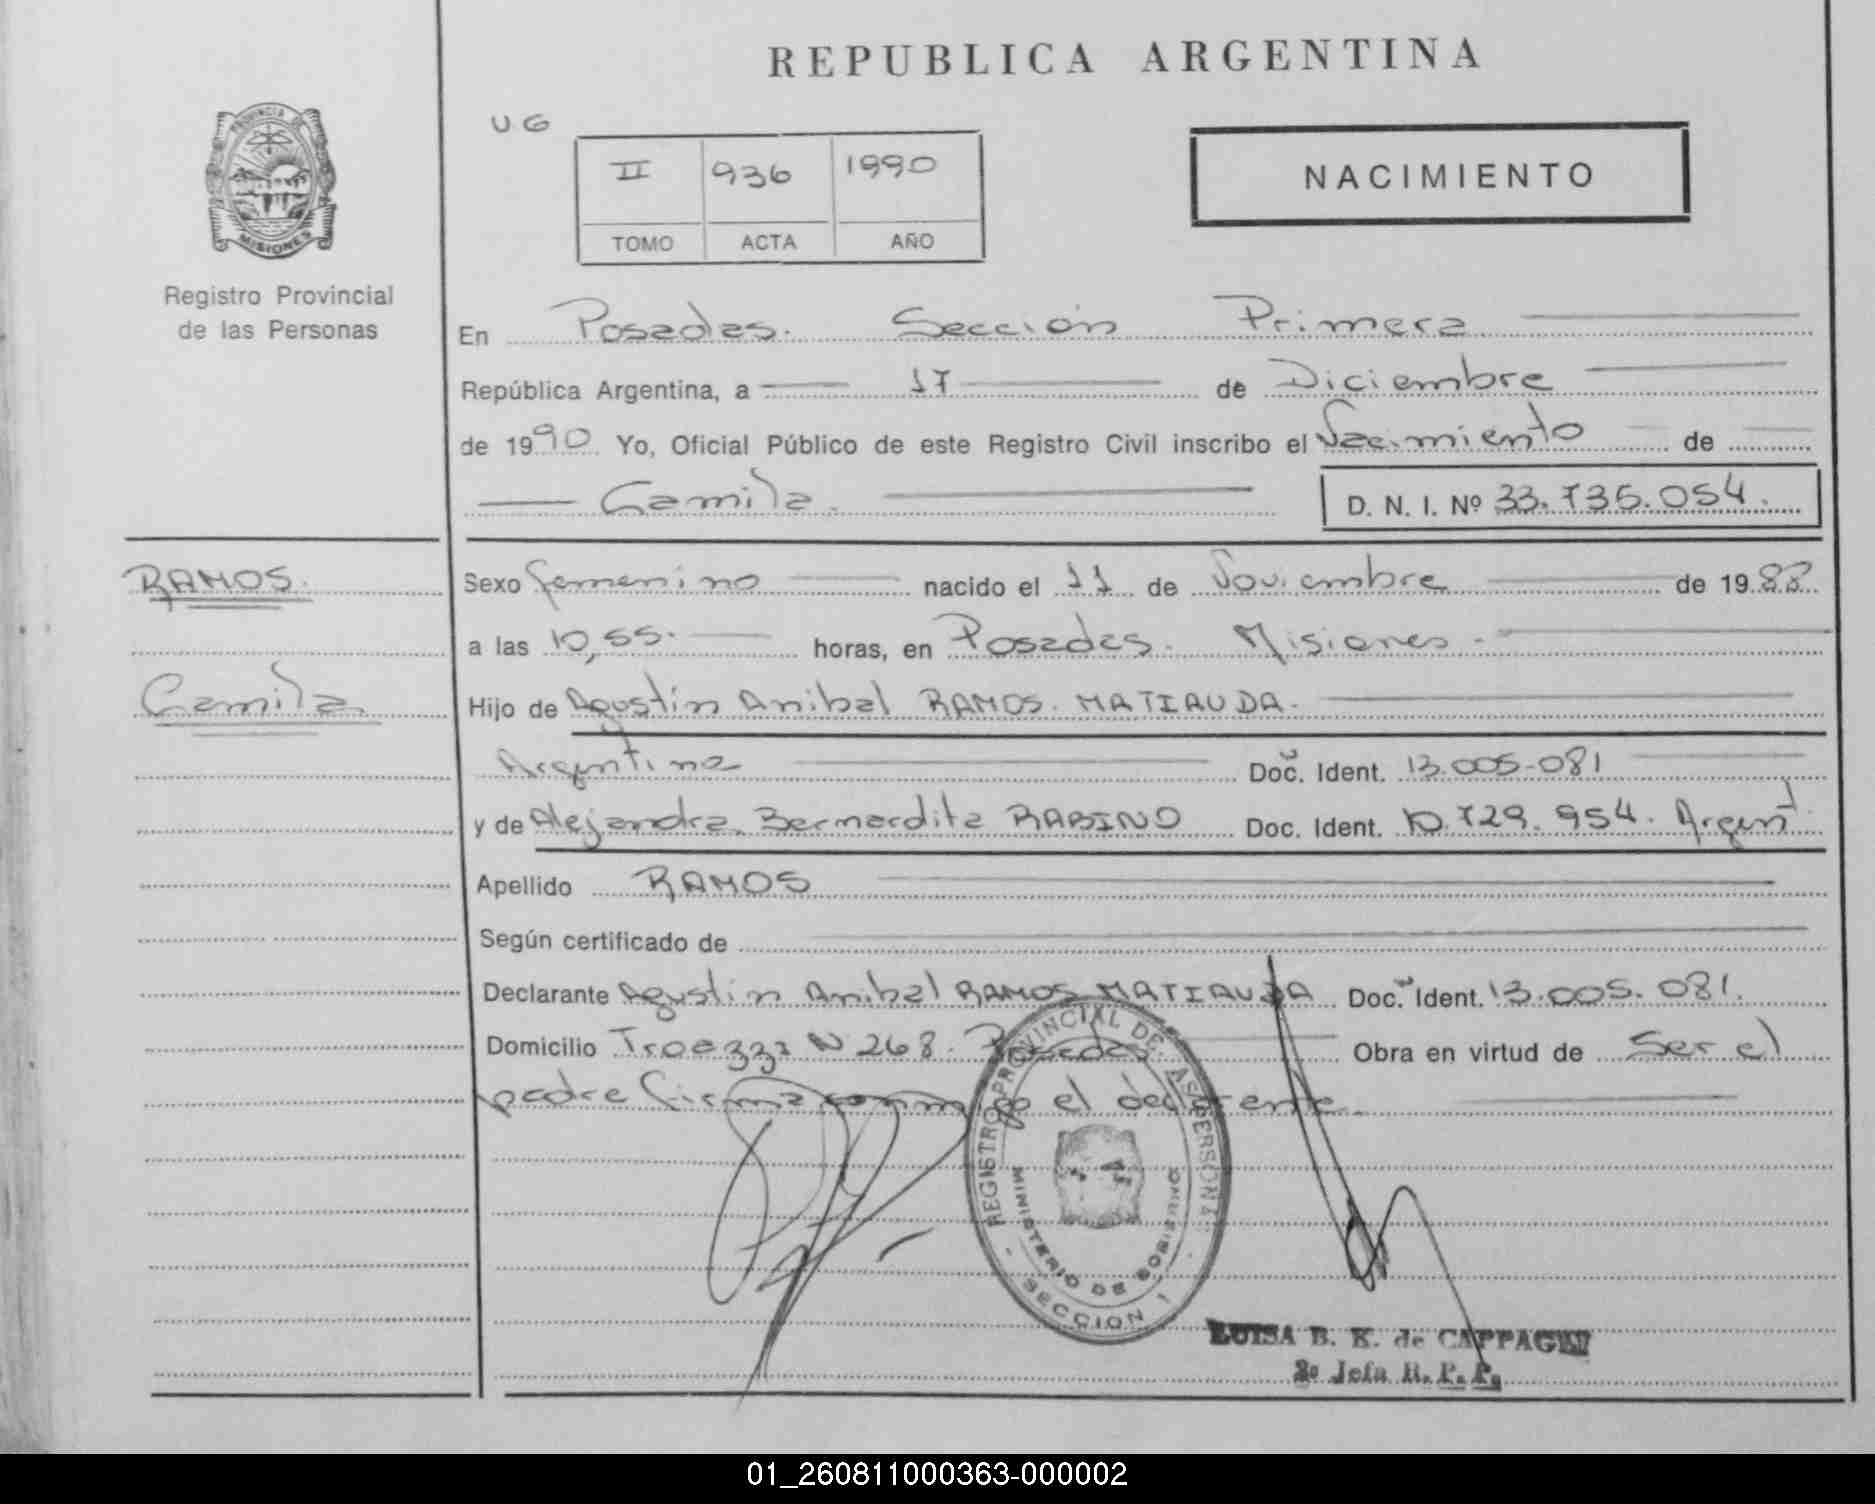 REPUBLICA ARGENTINA
UG
II 936 1990
TOMO ACTA AÑO
NACIMIENTO
PROVINCIA DE
MISIONES
Registro Provincial
de las Personas
En Posadas. Sección Primera
República Argentina, a 17 de Diciembre
de 1990 Yo, Oficial Público de este Registro Civil inscribo el Nacimiento de
Camila. D. N. I. Nº 33.735.054.
RAMOS.
Camila
Sexo femenino nacido el 11 de Noviembre de 1988
a las 10,55. horas, en Posadas. Misiones.
Hijo de Agustín Anibal RAMOS. MATIAUDA.
Argentino Doc. Ident. 13.005.081
y de Alejandra Bernardita RABINO Doc. Ident. 10.729.954. Argent.
Apellido RAMOS
Según certificado de
Declarante Agustin Anibal RAMOS MATIAUDA Doc. Ident. 13.005.081.
Domicilio Troazzi N 268. Posadas Obra en virtud de Ser el
padre firma conmigo el declarente.
REGISTRO PROVINCIAL DE AS PERSONAS
MINISTERIO DE GOBIERNO
SECCION 1
LUISA B. K. de CAPPAGLI
2º Jefa R. P. P.
01_260811000363-000002